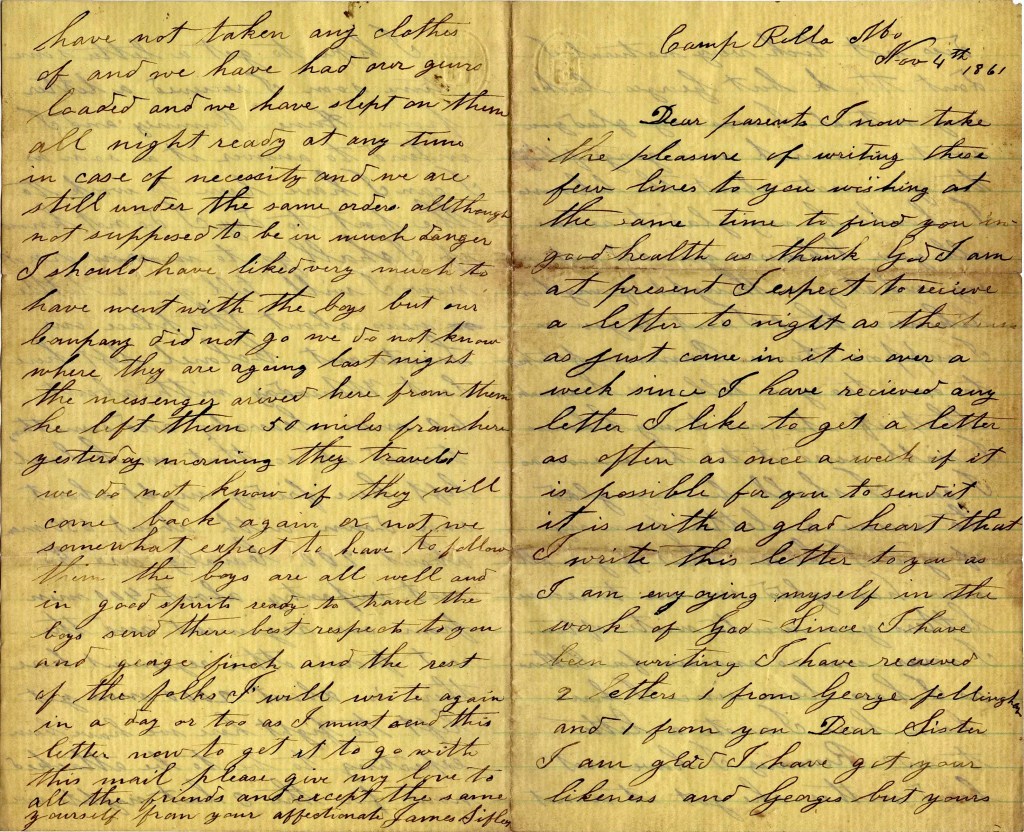 Camp Rolla Mo
Nov 4th 1861
Dear parents I now take
the pleasure of writing these
few lines to you wishing at
the same time to find you in
good health as thank God I am
at present I expect to recieve
a letter to night as the
as just came in it is over a
week since I have recieved any
letter I like to get a letter
as often as once a week if it
is possible for you to send it
it is with a glad heart that
I write this letter to you as
I am enyoying myself in the
work of God Since I have
been writing I have recieved
2 letters 1 from George
and 1 from you Dear Sister
I am glad I have got your
likeness and Georges but yours
have not taken any clothes
of and we have had our guns
loaded and we have slept on them
all night ready at any time
in case of necessity and we are
still under the same orders allthough
not supposed to be in much danger
I should have liked very much to
have went with the boys but our
Company did not go we do not know
where they are ageing last night
the messenger arived here from them
he left them 50 miles from here
yesterday morning they traveled
we do not know if they will
come back again or not we
somewhat expect to have to follow
them the boys are all well and
in good spirits ready to travel the
boys send there best respects to you
and george finch and the rest
of the folks I will write again
in a day or too as I must send this
letter now to get it to go with
this mail please give my love to
all the friends and except the same
yourself from your affectionate James